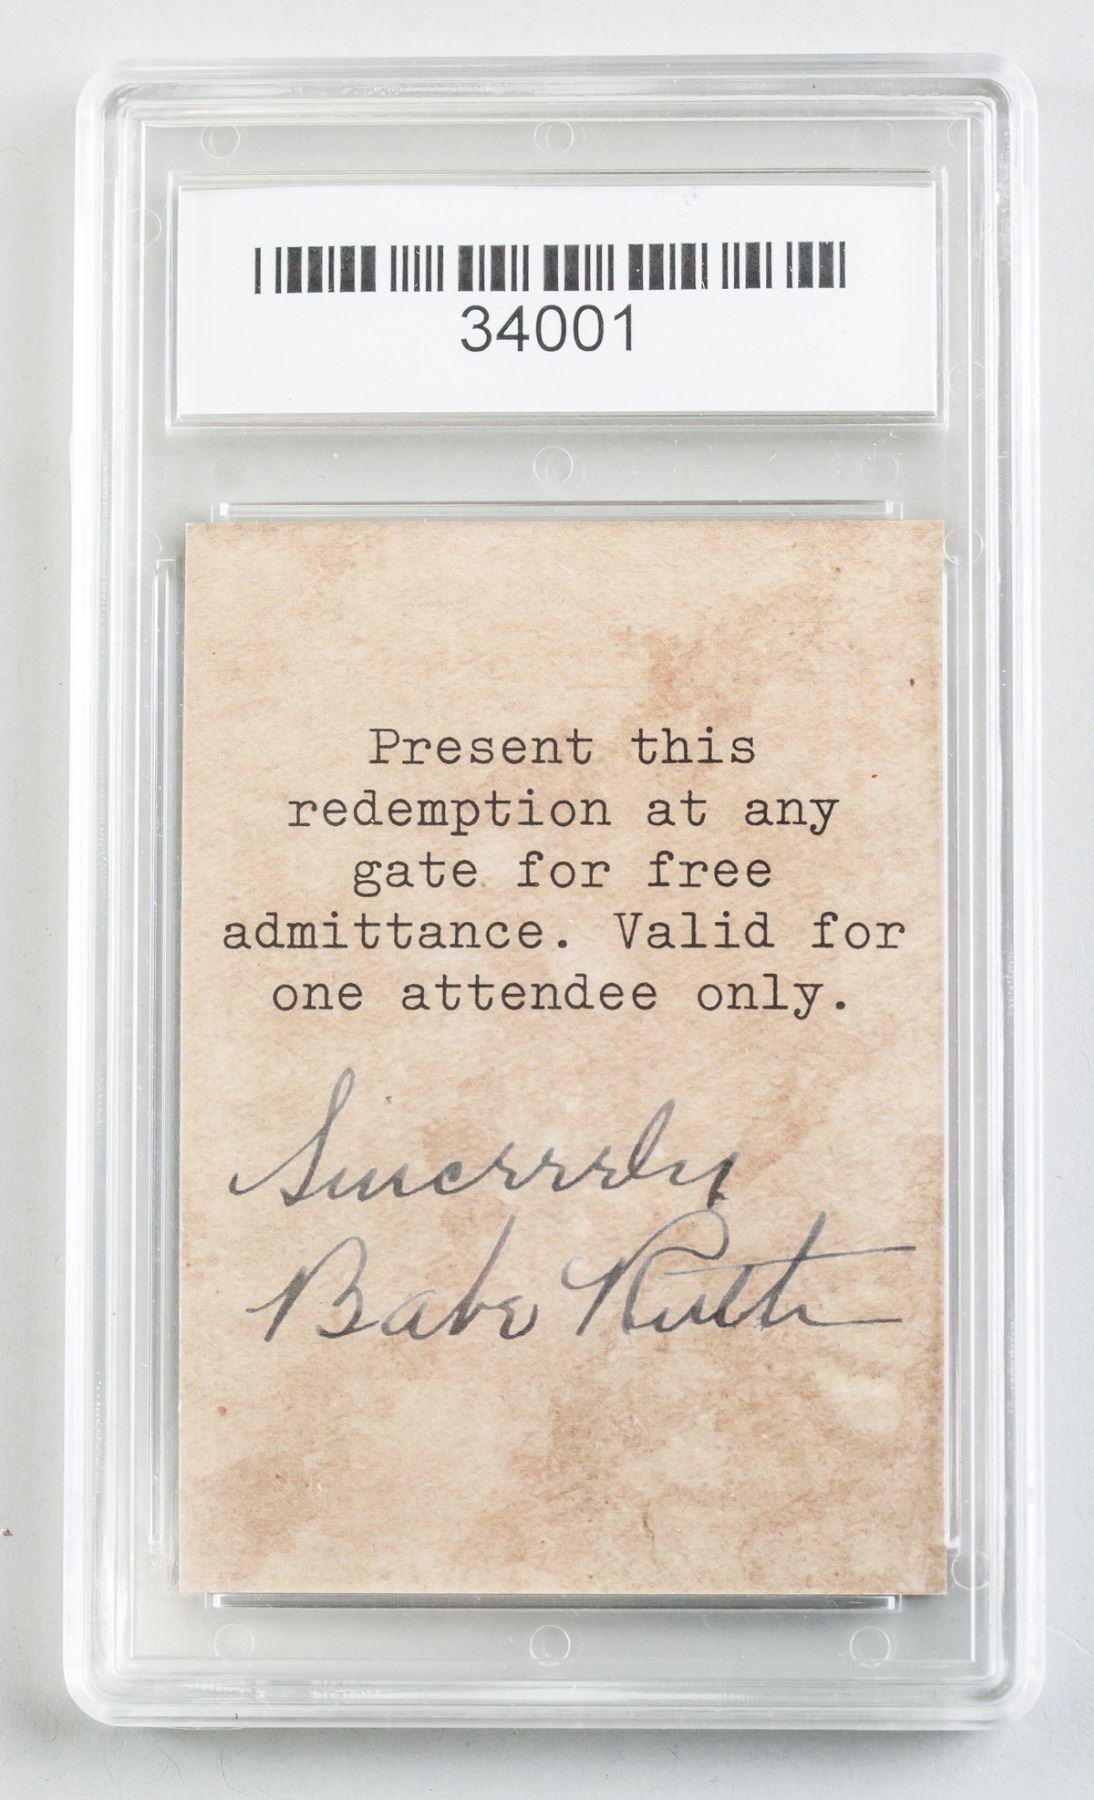 34001
Present this
redemption at any
gate for free
admittance. Valid for
one attendee only.
Sincerely
Babe Ruth